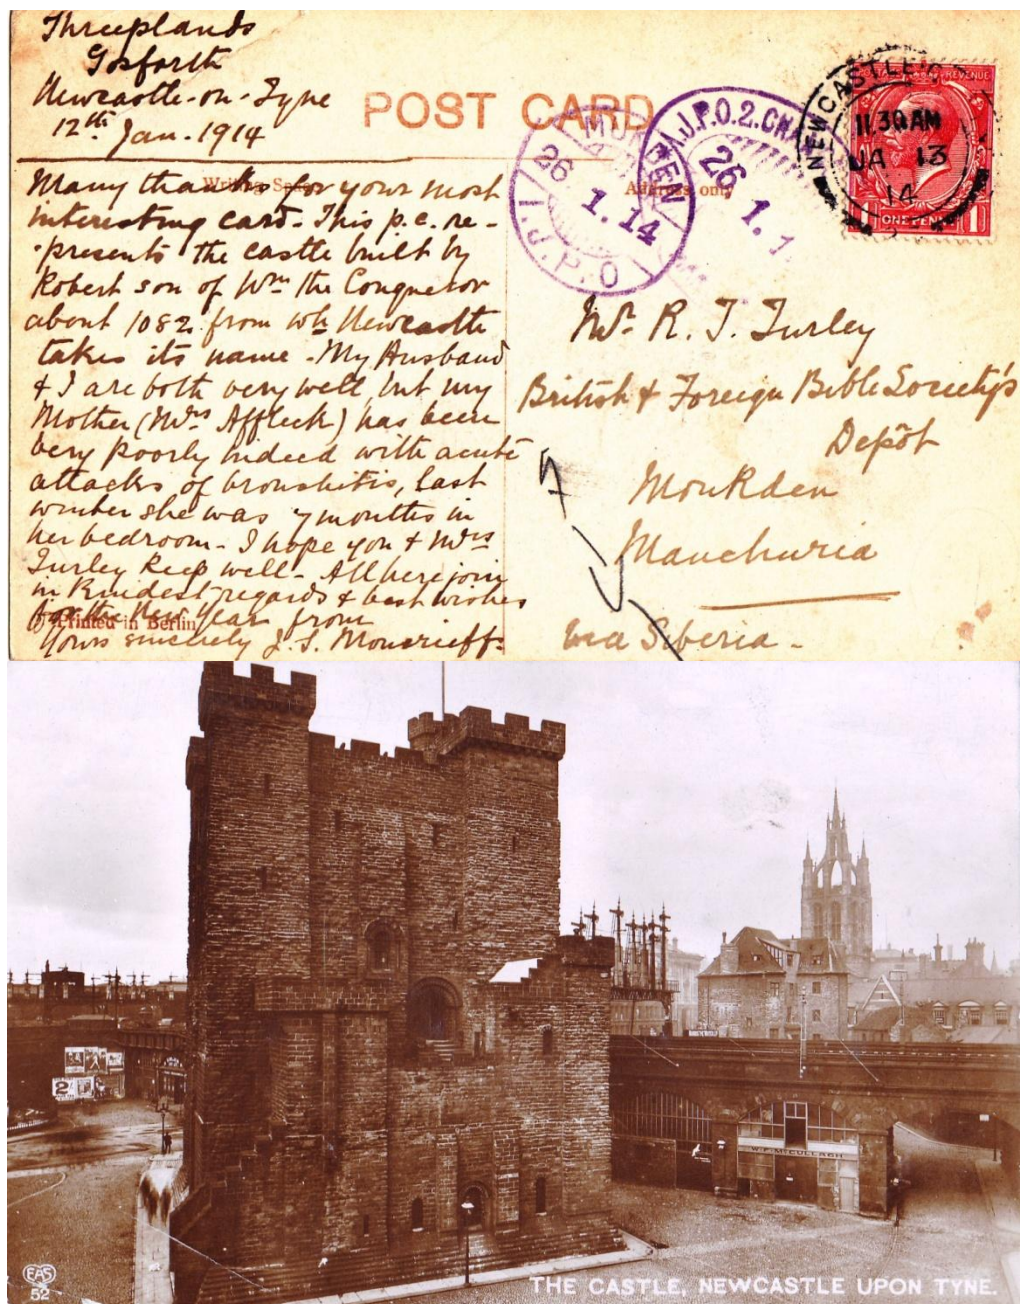 Threeplands
Gosforth
Newcastle-on-Tyne
12th Jan. 1914
POST CARD
Writing Space
Address only
Many thanks for your most
interesting card. This p.c. re-
-presents the castle built by
Robert son of Wm the Conqueror
about 1082 from wh Newcastle
takes its name. My Husband
& I are both very well, but my
Mother (Mrs Affleck) has been
very poorly indeed with acute
attacks of bronchitis, last
winter she was 7 months in
her bedroom. I hope you & Mrs
Turley keep well. All here join
in kindest regards & best wishes
for the New Year from
Yours sincerely J. S. Moncrieff.
Printed in Berlin
MUKDEN
26
1.14
I.J.P.O
I.J.P.O.2.CHA
26
1.1
NEWCASTLE
11.30AM
JA 13
14
REVENUE
1 ONE PENNY 1
Mr. R. T. Turley
British & Foreign Bible Society's
Depôt
Moukden
Manchuria
via Siberia.
2
W.F. McCULLAGH
EAS
52
THE CASTLE, NEWCASTLE UPON TYNE.